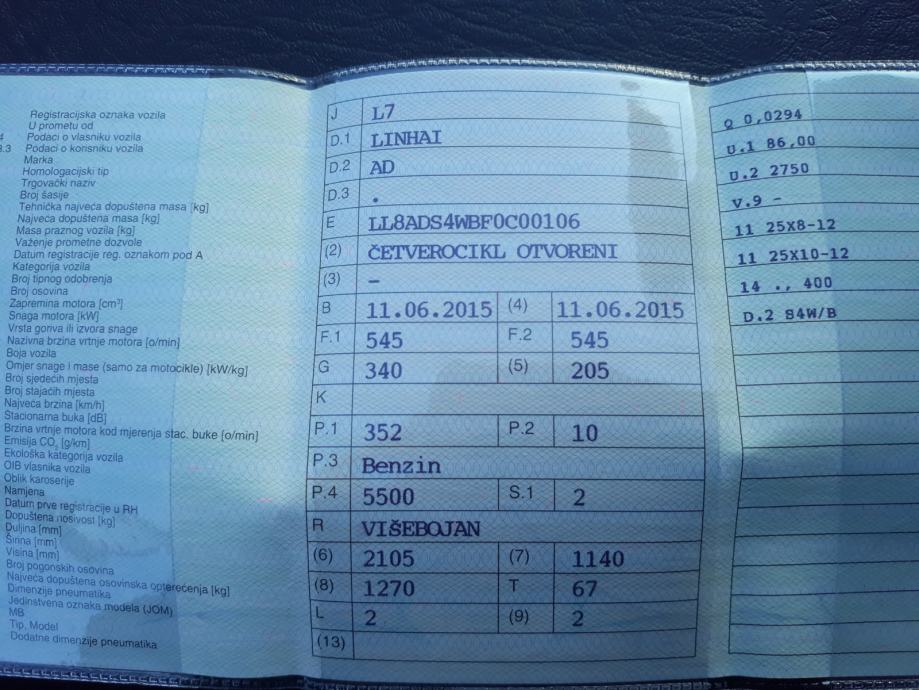 Registracijska oznaka vozila
U prometu od
4 Podaci o vlasniku vozila
3.3 Podaci o korisniku vozila
Marka
Homologacijski tip
Trgovački naziv
Broj šasije
Tehnička najveća dopuštena masa [kg]
Najveća dopuštena masa [kg]
Masa praznog vozila [kg]
Važenje prometne dozvole
Datum registracije reg. oznakom pod A
Kategorija vozila
Broj tipnog odobrenja
Broj osovina
Zapremina motora [cm³]
Snaga motora [kW]
Vrsta goriva ili izvora snage
Nazivna brzina vrtnje motora [o/min]
Boja vozila
Omjer snage i mase (samo za motocikle) [kW/kg]
Broj sjedećih mjesta
Broj stajaćih mjesta
Najveća brzina [km/h]
Stacionarna buka [dB]
Brzina vrtnje motora kod mjerenja stac. buke [o/min]
Emisija CO₂ [g/km]
Ekološka kategorija vozila
OIB vlasnika vozila
Oblik karoserije
Namjena
Datum prve registracije u RH
Dopuštena nosivost [kg]
Duljina [mm]
Širina [mm]
Visina [mm]
Broj pogonskih osovina
Najveća dopuštena osovinska opterećenja [kg]
Dimenzije pneumatika
Jedinstvena oznaka modela (JOM)
MB
Tip, Model
Dodatne dimenzije pneumatika
J L7
D.1 LINHAI
D.2 AD
D.3 .
E LL8ADS4WBF0C00106
(2) ČETVEROCIKL OTVORENI
(3) –
B 11.06.2015 (4) 11.06.2015
F.1 545 F.2 545
G 340 (5) 205
K
P.1 352 P.2 10
P.3 Benzin
P.4 5500 S.1 2
R VIŠEBOJAN
(6) 2105 (7) 1140
(8) 1270 T 67
L 2 (9) 2
(13)
Q 0,0294
U.1 86,00
U.2 2750
V.9 -
11 25X8-12
11 25X10-12
14 ., 400
D.2 S4W/B